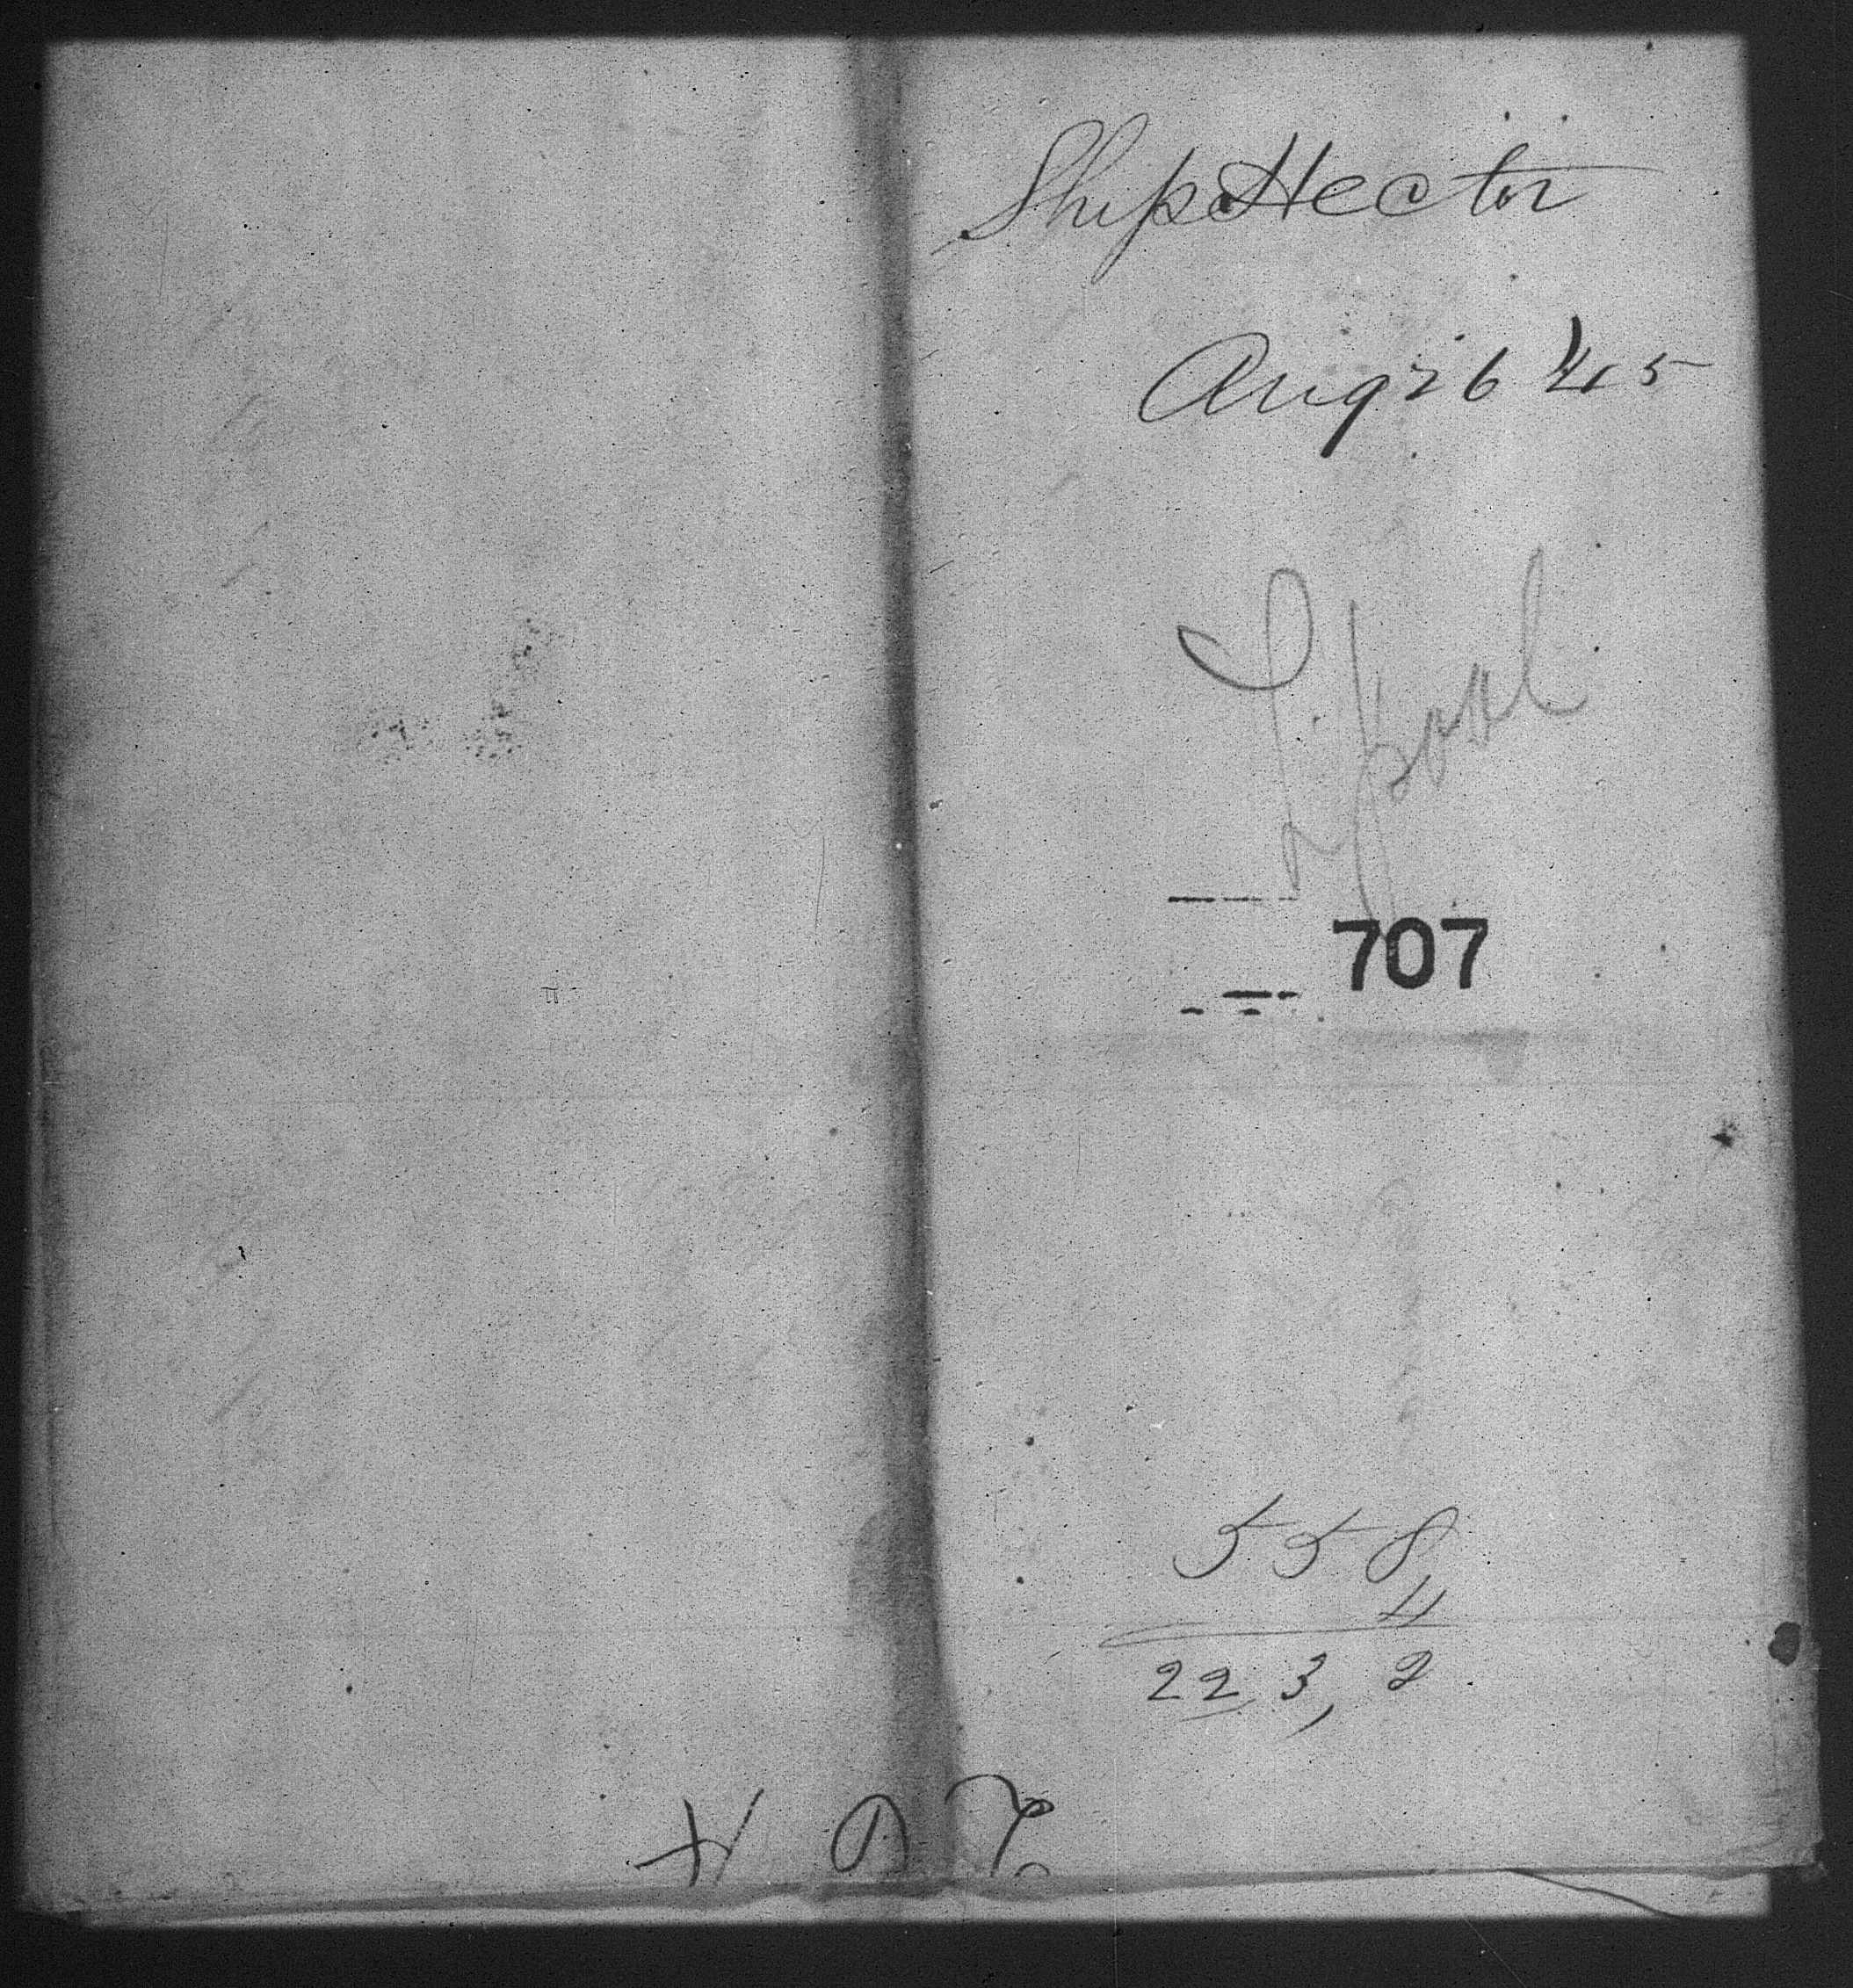 Ship Hector
Aug 26 45
L.pool
707
558
4
223,2